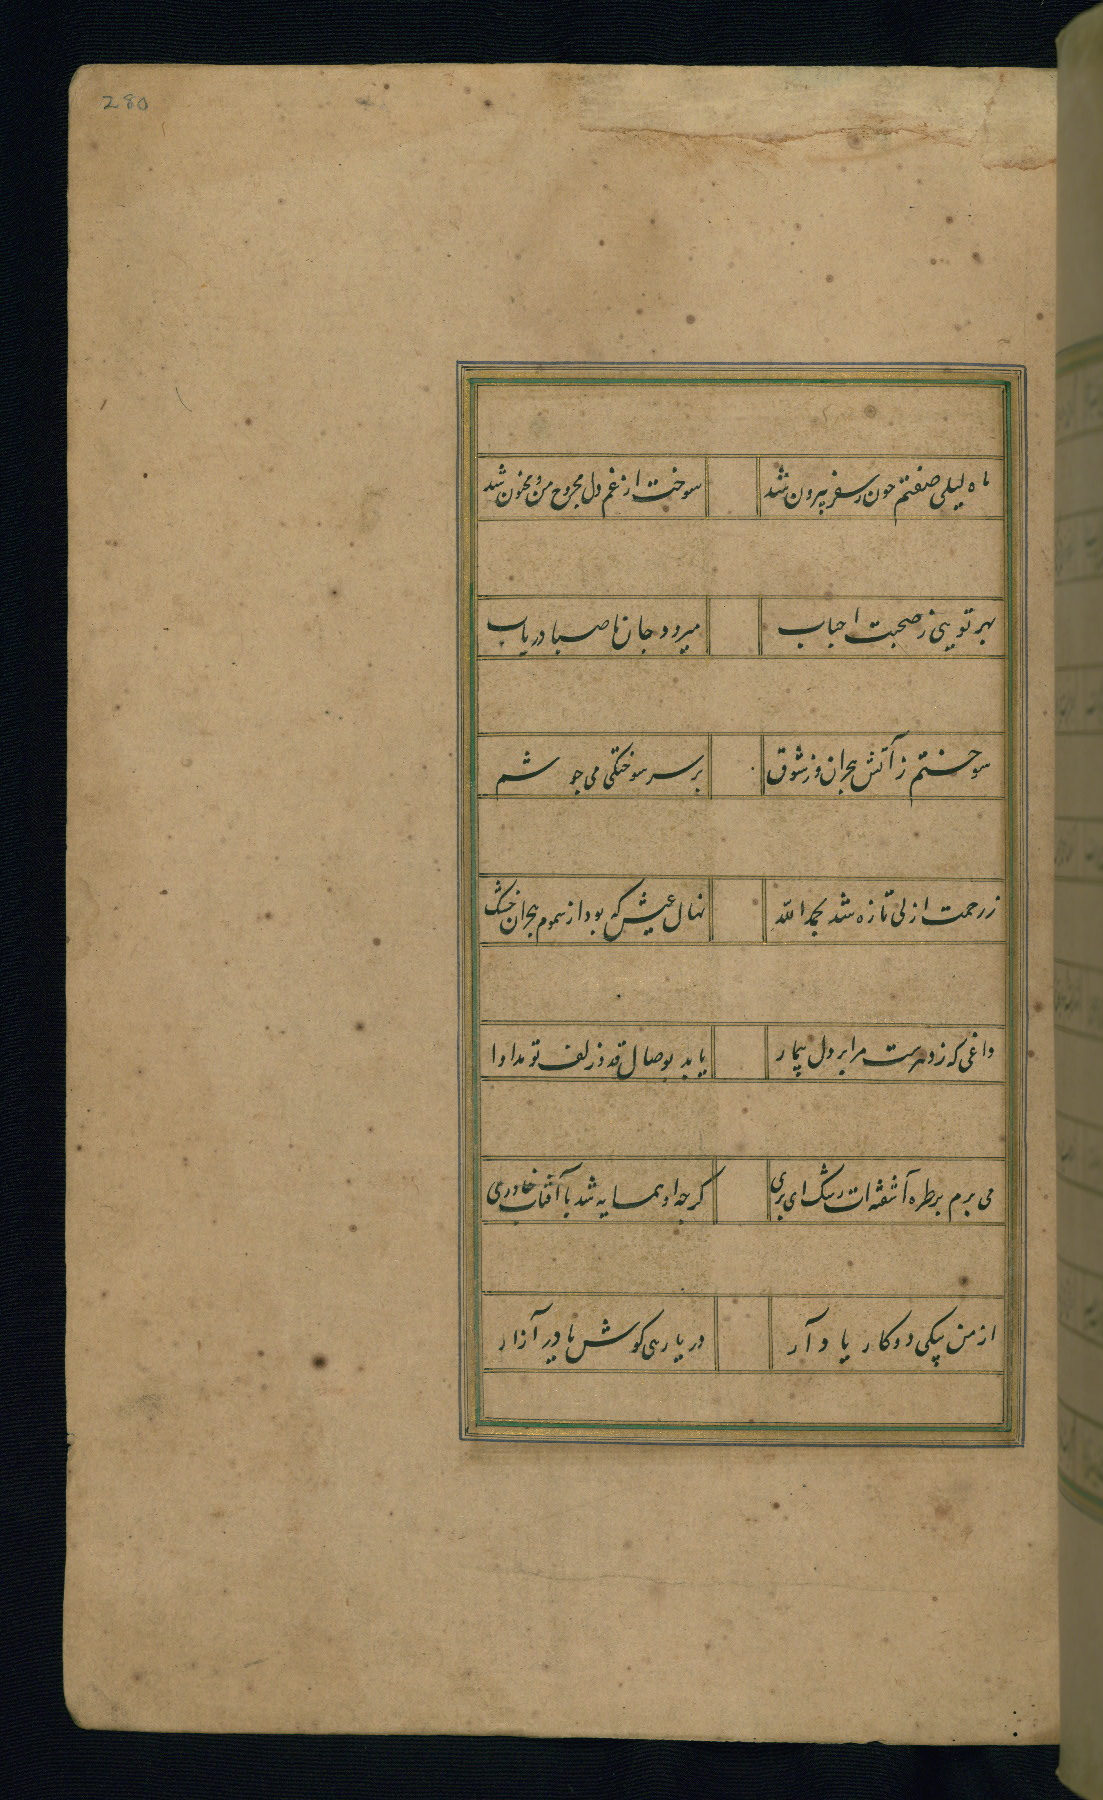 280
ماه لیلی صفتم چون ز سفر بیرون شد
سوخت از غم دل مجروح من و مجنون شد
بهر تو یی ز صحبت احباب
میرود جان ما صبا دریاب
سوختم ز آتش هجران وز شوق
بر سر سوختگی می جوشم
ز رحمت ازلی تازه شد بحمد الله
نهال عیش که بود از سموم هجران خشک
داغی که ز دهرست مرا بر دل بیمار
یابد بوصال قد و زلف تو مداوا
می برم بر طره آشفته ات رشک ای پری
کرچه او همسایه شد با آفتاب خاوری
از من یکی دو کار یاد آر
در یاری کوش یا در آزار